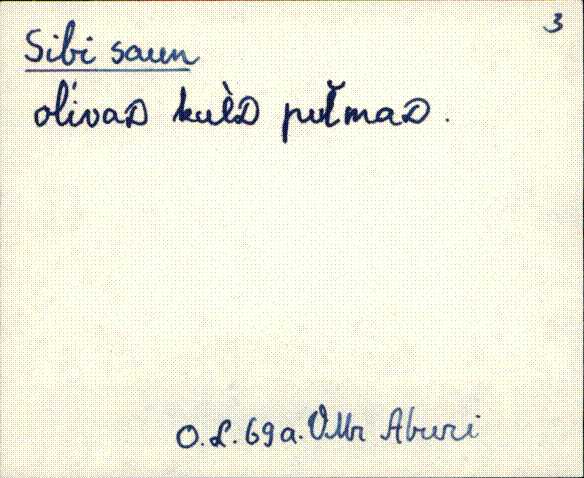 3
Sibi saun
olivaD kulD pulmaD.
O. L. 69a. VMr Aburi